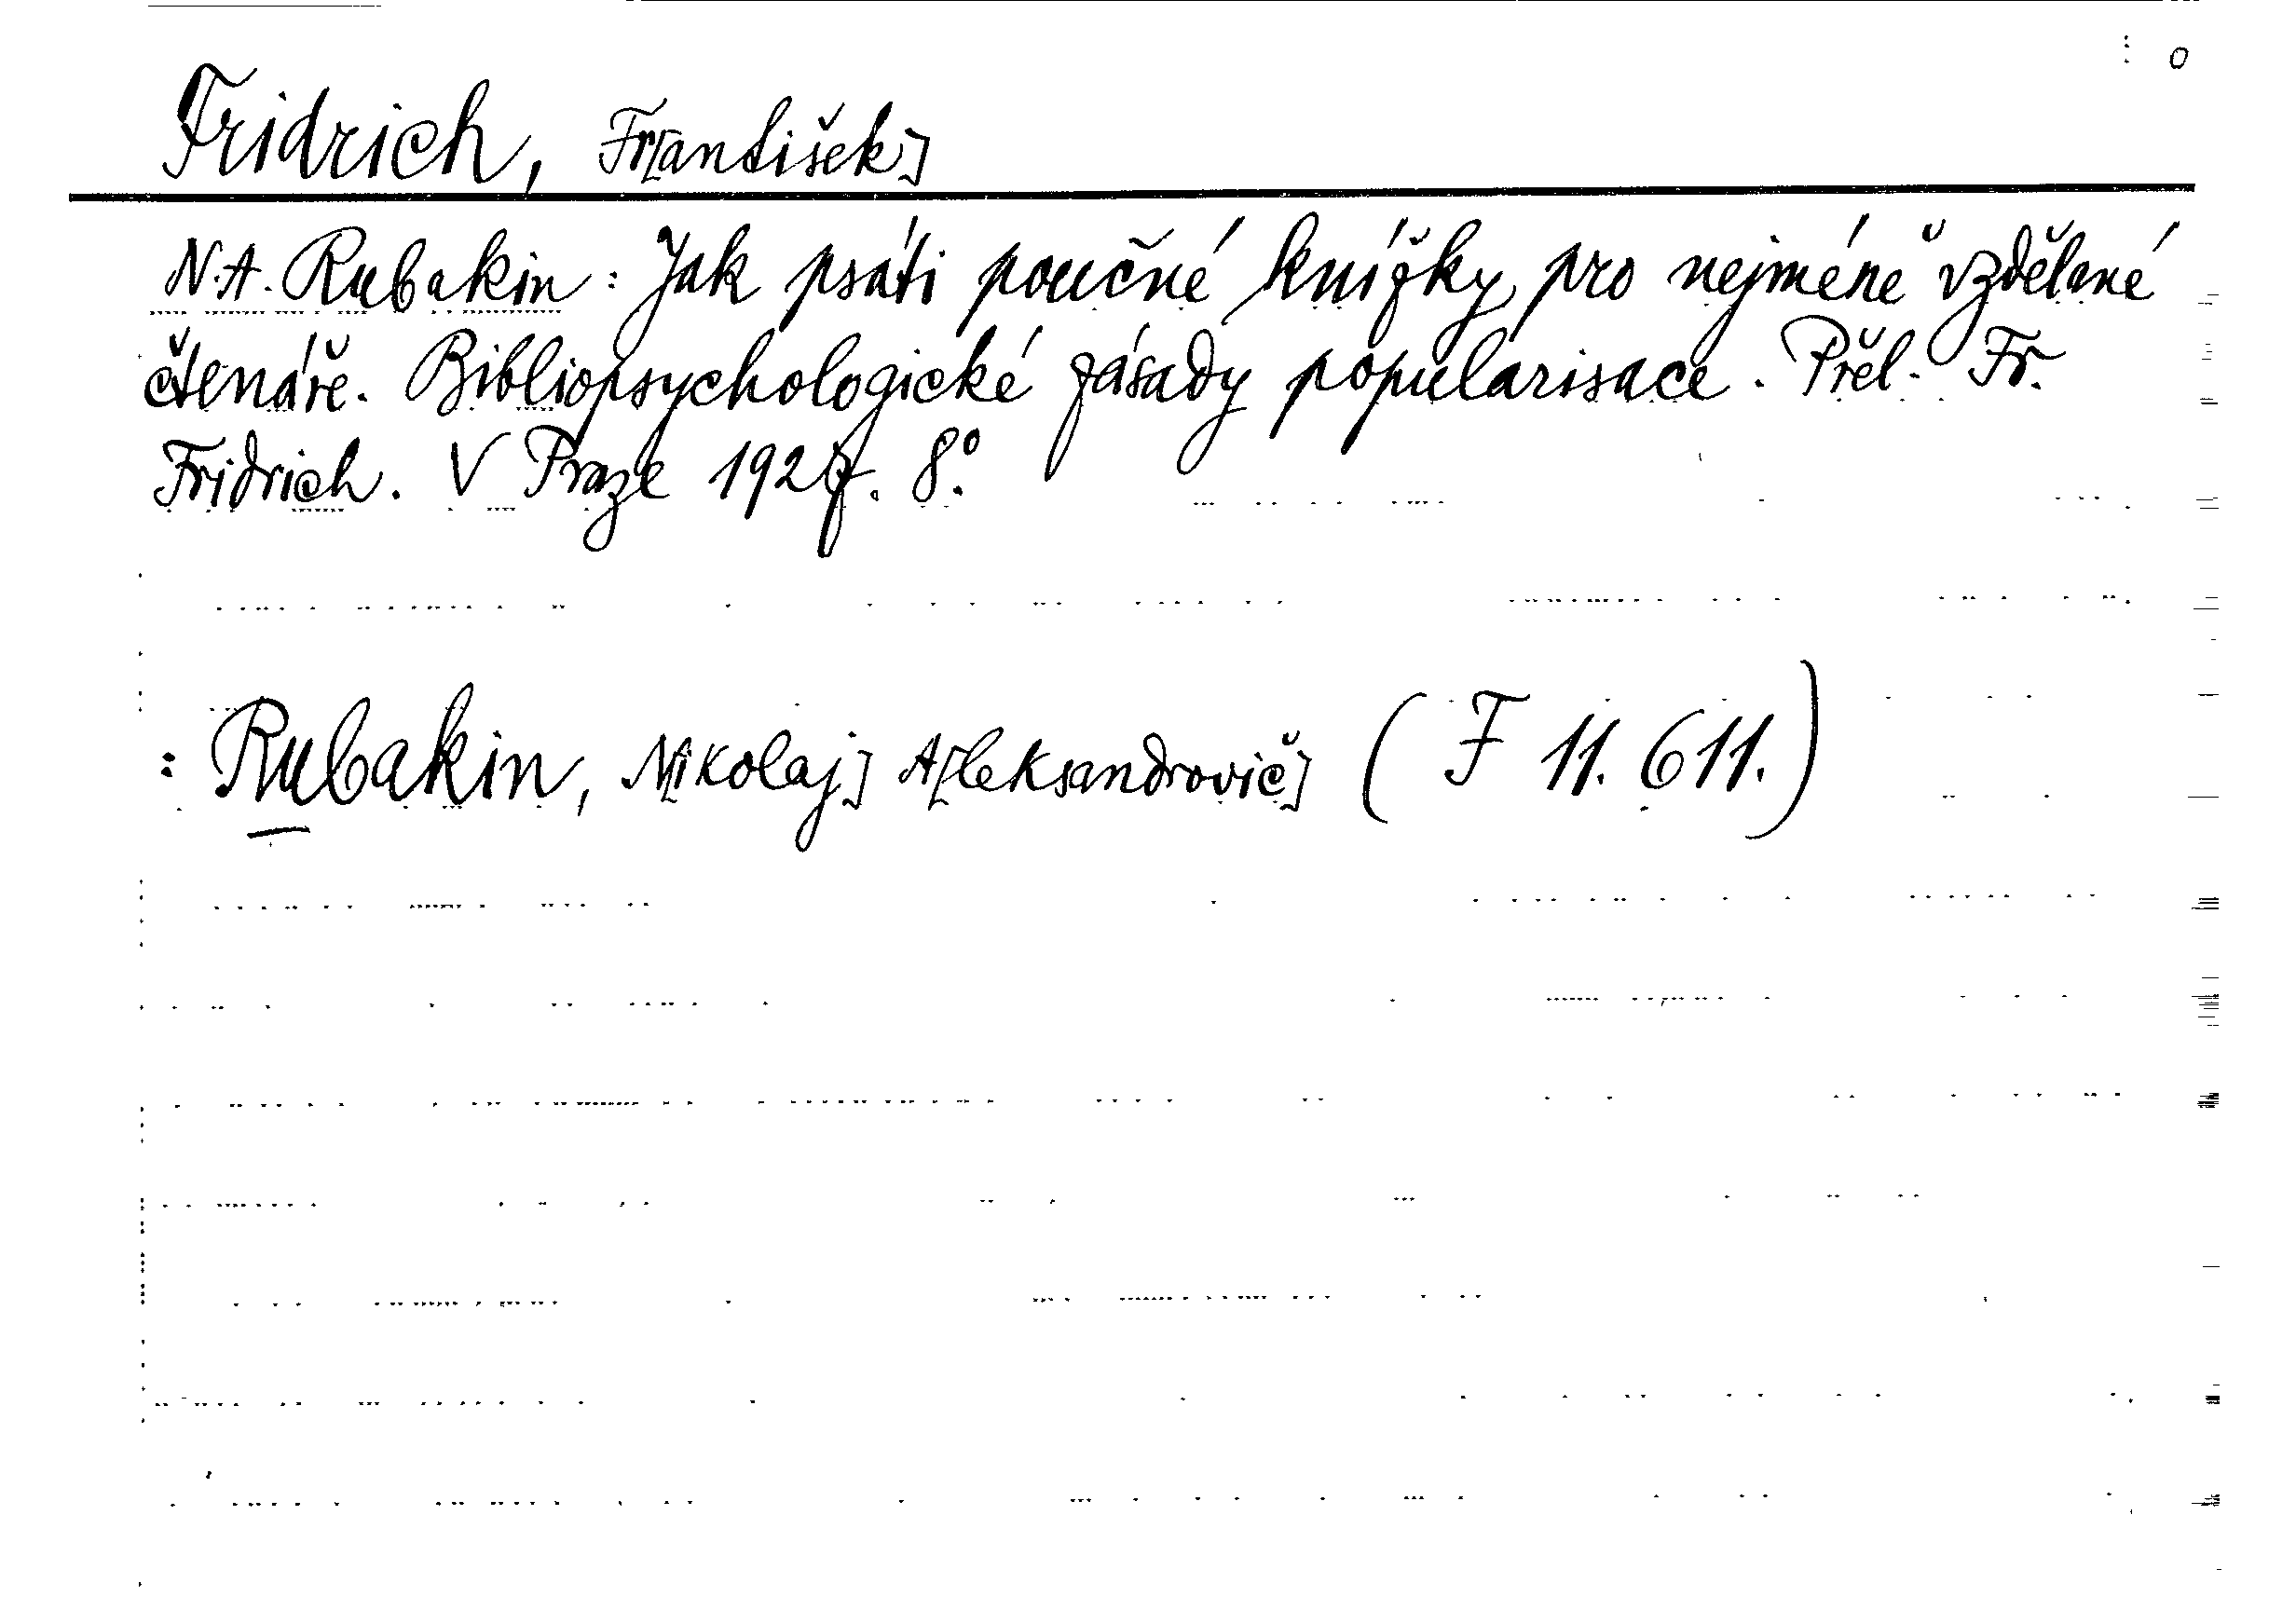 o
Fridrich, Fr[antišek]
N. A. Rubakin: Jak psáti poučné knížky pro nejméně vzdělané
čtenáře. Bibliopsychologické zásady popularisace. Přel. Fr.
Fridrich. V Praze 1927. 8°.
: Rubakin, N[ikolaj] A[leksandrovič] (F 11.611.)